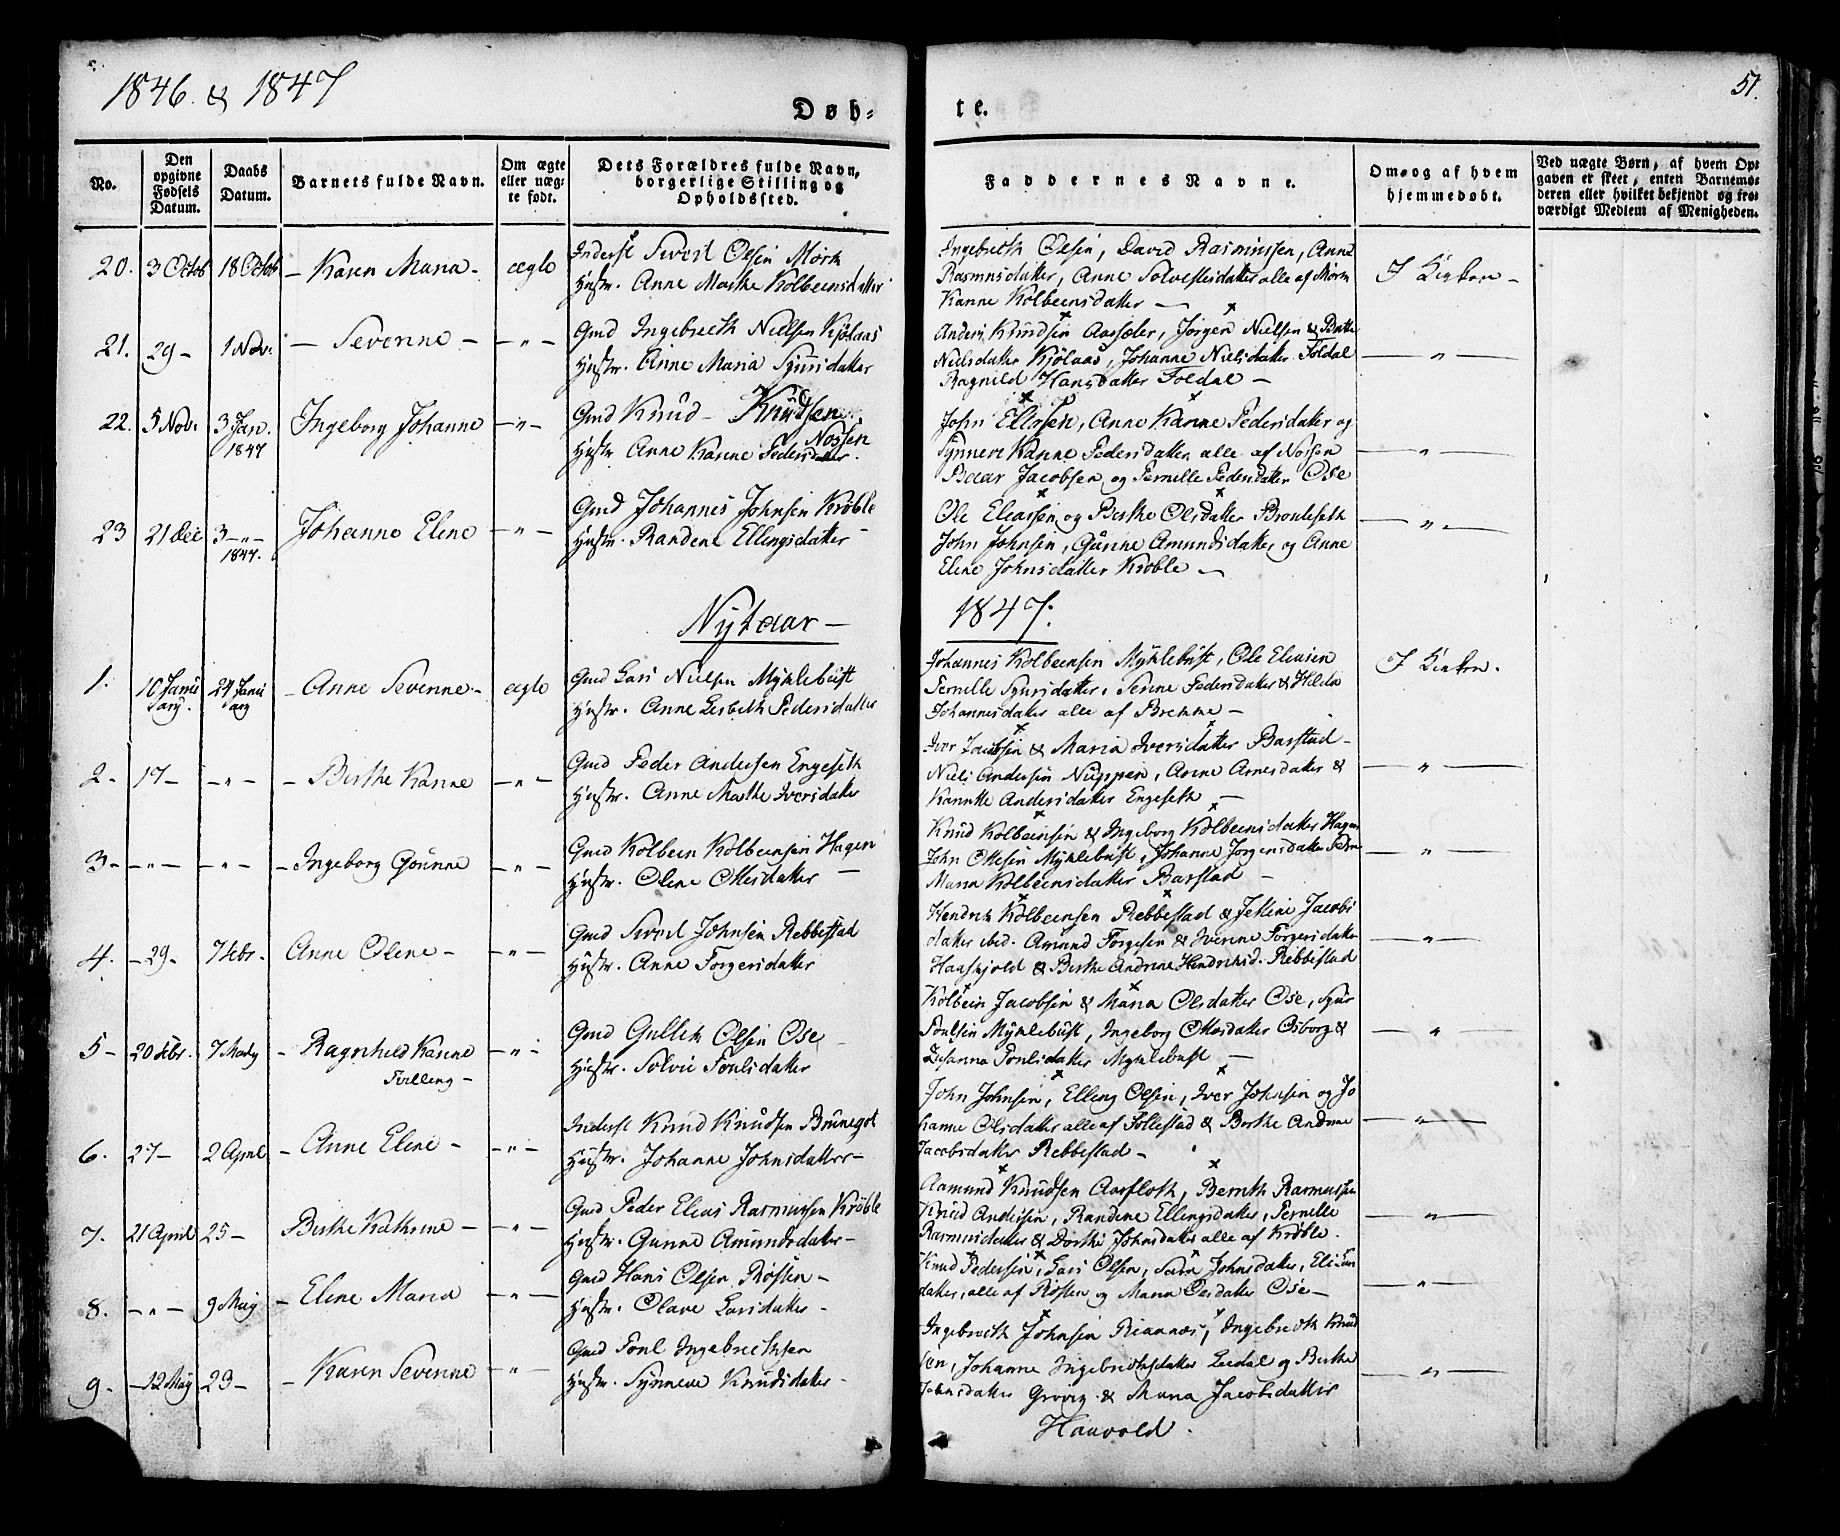 1846 & 1847
51.
Døb-
te.
No.
Den opgivne Fødsels Datum.
Daabs Datum.
Barnets fulde Navn.
Om ægte eller uæg-te født.
Dets Forældres fulde Navn, borgerlige Stilling og Opholdssted.
Faddernes Navne.
Om og af hvem hjemmedøbt.
Ved uægte Børn, af hvem Op-gaven er skeet, enten Barnemo-deren eller hvilket bekjendt og tro-værdigt Medlem af Menigheden.
20. 3 Octob 18 Octob – Karen Maria – ægte
Inderst Sivert Olsen Mork
Hustr. Anne Marthe Kolbeensdatter
Ingebreth Olsen, David Rasmussen, Anne
Rasmusdatter, Anne alle af Mork
Karine Kolbeensdatter –
I Kirken –
21. 29 – 1 Nov. – Severine – – " –
Gmd Ingebreth Nielsen Kjölaas
Hustr. Anne Maria
Anders Knudsen Aarsæter, Jørgen Nielsen &
Nielsdatter Kjölaas, Johanne Nielsdatter Foldal
Ragnild Hansdatter Foldal –
– " –
22. 5 Nov. 3 Jan. 1847 Ingeborg Johanne – " –
Gmd Knud – Knudsen
Nossen
Hustr Anne Karine Pedersdatter.
John Ellefsen, Anne Karine Pedersdatter og
Synneve Karine Pedersdatter alle af Nossen
Baar Jacobsen og Pernille Pedersdatter Ose
– " –
23 21 Dec 3 – " – 1847. Johanne Elene – " –
Gmd Johannes Johnsen Krøble
Hustr. Randene Ellingsdatter –
Ole Eliassen og Berthe Olsdatter Brouteseth
John Johnsen, Gurine Amundsdatter og Anne
Elene Johnsdatter Krøble –
– " –
Nytaar –
1847.
1. 10 Janu ary. 24 Janu ary – Anne Severine – ægte
Gmd Lars Nielsen Myklebust
Hustr. Anne Lisbeth Pedersdatter
Johannes Kolbeensen Myklebust, Ole Eliasen
Pernille Syversdatter, Serine Pedersdatter &
Johannesdatter alle af Brekke –
I Kirken.
2 – 17 – – " – – Berthe Karine – " –
Gmd Peder Andersen Engeseth
Hustr. Anne Marthe Iversdatter
Iver Jacobsen & Maria Iversdatter Barstad –
Niels Andersen Nuppen, Anne Arnesdatter &
Karitte Andersdatter Engeseth –
– " –
3 – – " – – " – – Ingeborg Gurine – " –
Gmd Kolbeen Kolbeensen Hagen
Hustr. Olene Ottesdatter –
Knud Kolbeensen & Ingeborg Kolbeensdatter Hagen
John Ottesen Myklebust, Johanne Jorgensdatter
Maria Kolbeensdatter Barstad –
– " –
4. – 29 – 7 Febr. Anne Olene – – " –
Gmd Sivert Johnsen Rebbestad
Hustr. Anne Torgersdatter
Hendrik Kolbeensen Rebbestad & Jettine Jacobs
datter ibid. Amund Torgersen & Iverine Torgersdatter
Haaskjold & Berthe Andrine Hendriksd. Rebbestad
– " –
5 – 20 Febr. 7 Marty – Ragnhild Karine – " –
Tvilling –
Gmd Gullik Olsen Ose
Hustr. Solvie Poulsdatter
Kolbein Jacobsen & Maria Olsdatter Ose, Syver
Poulsen Myklebust, Ingeborg Ottesdatter Osborg &
Susanna Poulsdatter Myklebust –
– " –
6. 27 – 2 April – Anne Elene – – " –
Inderst Knud Knudsen Brunegot
Hustr. Johanne Johnsdatter –
John Johnsen, Elling Olsen, Iver Johnsen og Jo
hanne Olsdatter alle af Follestad & Berthe Andrine
Jacobsdatter Rebbestad –
– " –
7. 21 April 25 – Berthe Kathrine – – " –
Gmd Peder Elias Rasmussen Krøble
Hustr. Gurine Amundsdatter –
Aamund Knudsen Aarfloth, Bernth Rasmussen
Knud Andersen, Randene Ellingsdatter, Pernille
Rasmusdatter & Dorthe Johnsdatter alle af Krøble.
– " –
8. – " – 9 May – Elene Maria – " –
Gmd Hans Olsen Røsten –
Hustr. Olave Larsdatter –
Knud Pedersen, Lars Olsen, Sara Johnsdatter,
datter, alle af Røsten og Maria Olsdatter Ose –
– " –
9. – 12 May 23 – – Karen Severine – " –
Gmd Poul Ingebrethsen
Hustr. Synneve Knudsdatter –
Ingebreth Johnsen Riannæs, Ingebreth Knud
sen, Johanne Ingebrethsdatter Leedal og Berthe
Johnsdatter Grovig & Maria Jacobsdatter
Haavold.
– " –